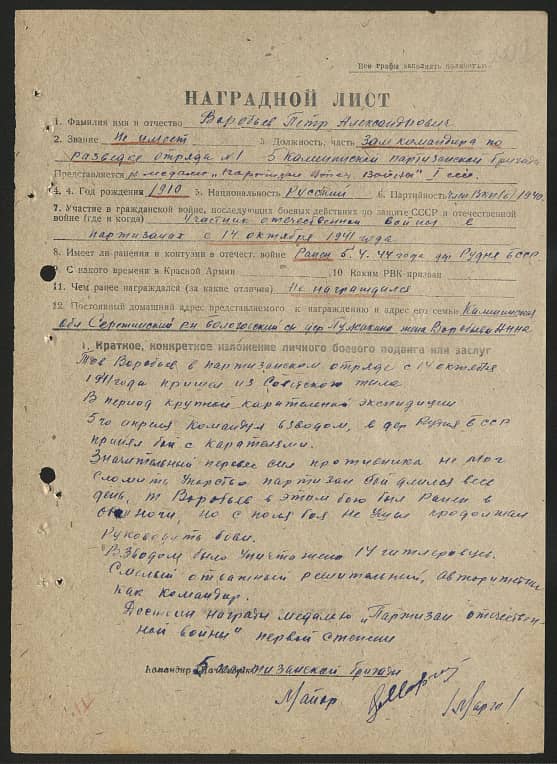 Все графы заполнять полностью
НАГРАДНОЙ ЛИСТ
1. Фамилия имя и отчество Воробьев Петр Александрович
2. Звание Не имеет 3 Должность, часть Зам командира по
разведке отряда №1 5 Калининской партизанской бригады
Представляется к медали "Партизан Отеч. Войны" I ст.
4. Год рождения 1910 5. Национальность Русский 6. Партийность член ВКП(б) 1940.
7. Участие в гражданской войне, последующих боевых действиях по защите СССР и отечественной
войне (где и когда) Участник отечественной войны в
партизанах с 14 октября 1941 года
8. Имеет ли ранения и контузии в отечест. войне Ранен 5.4.44 года дер Рудня БССР
9. С какого времени в Красной Армии 10 Каким РВК призван
11. Чем ранее награждался (за какие отличия) Не награждался
12. Постоянный домашний адрес представляемого к награждению и адрес его семьи Калининская
обл р-н с/с дер жена Воробьева Анна
I. Краткое, конкретное изложение личного боевого подвига или заслуг
Тов Воробьев в партизанском отряде с 14 октября
1941 года пришел из Советского тыла
В период крупной карательной экспедиции
5го апреля командуя взводом, в дер Рудня БССР
принял бой с карателями.
Значительный перевес сил противника не мог
сломить упорство партизан бой длился весь
день, т Воробьев в этом бою был ранен в
ноги, но с поля боя не ушел продолжал
руководить боем.
Взводом было уничтожено 14 гитлеровцев.
Смелый отважный решительный, авторитетен
как командир.
Достоин награды медалью „Партизан отечествен-
ной войны" первой степени
Командир 5 партизанской бригады
Майор Марго /Марго/